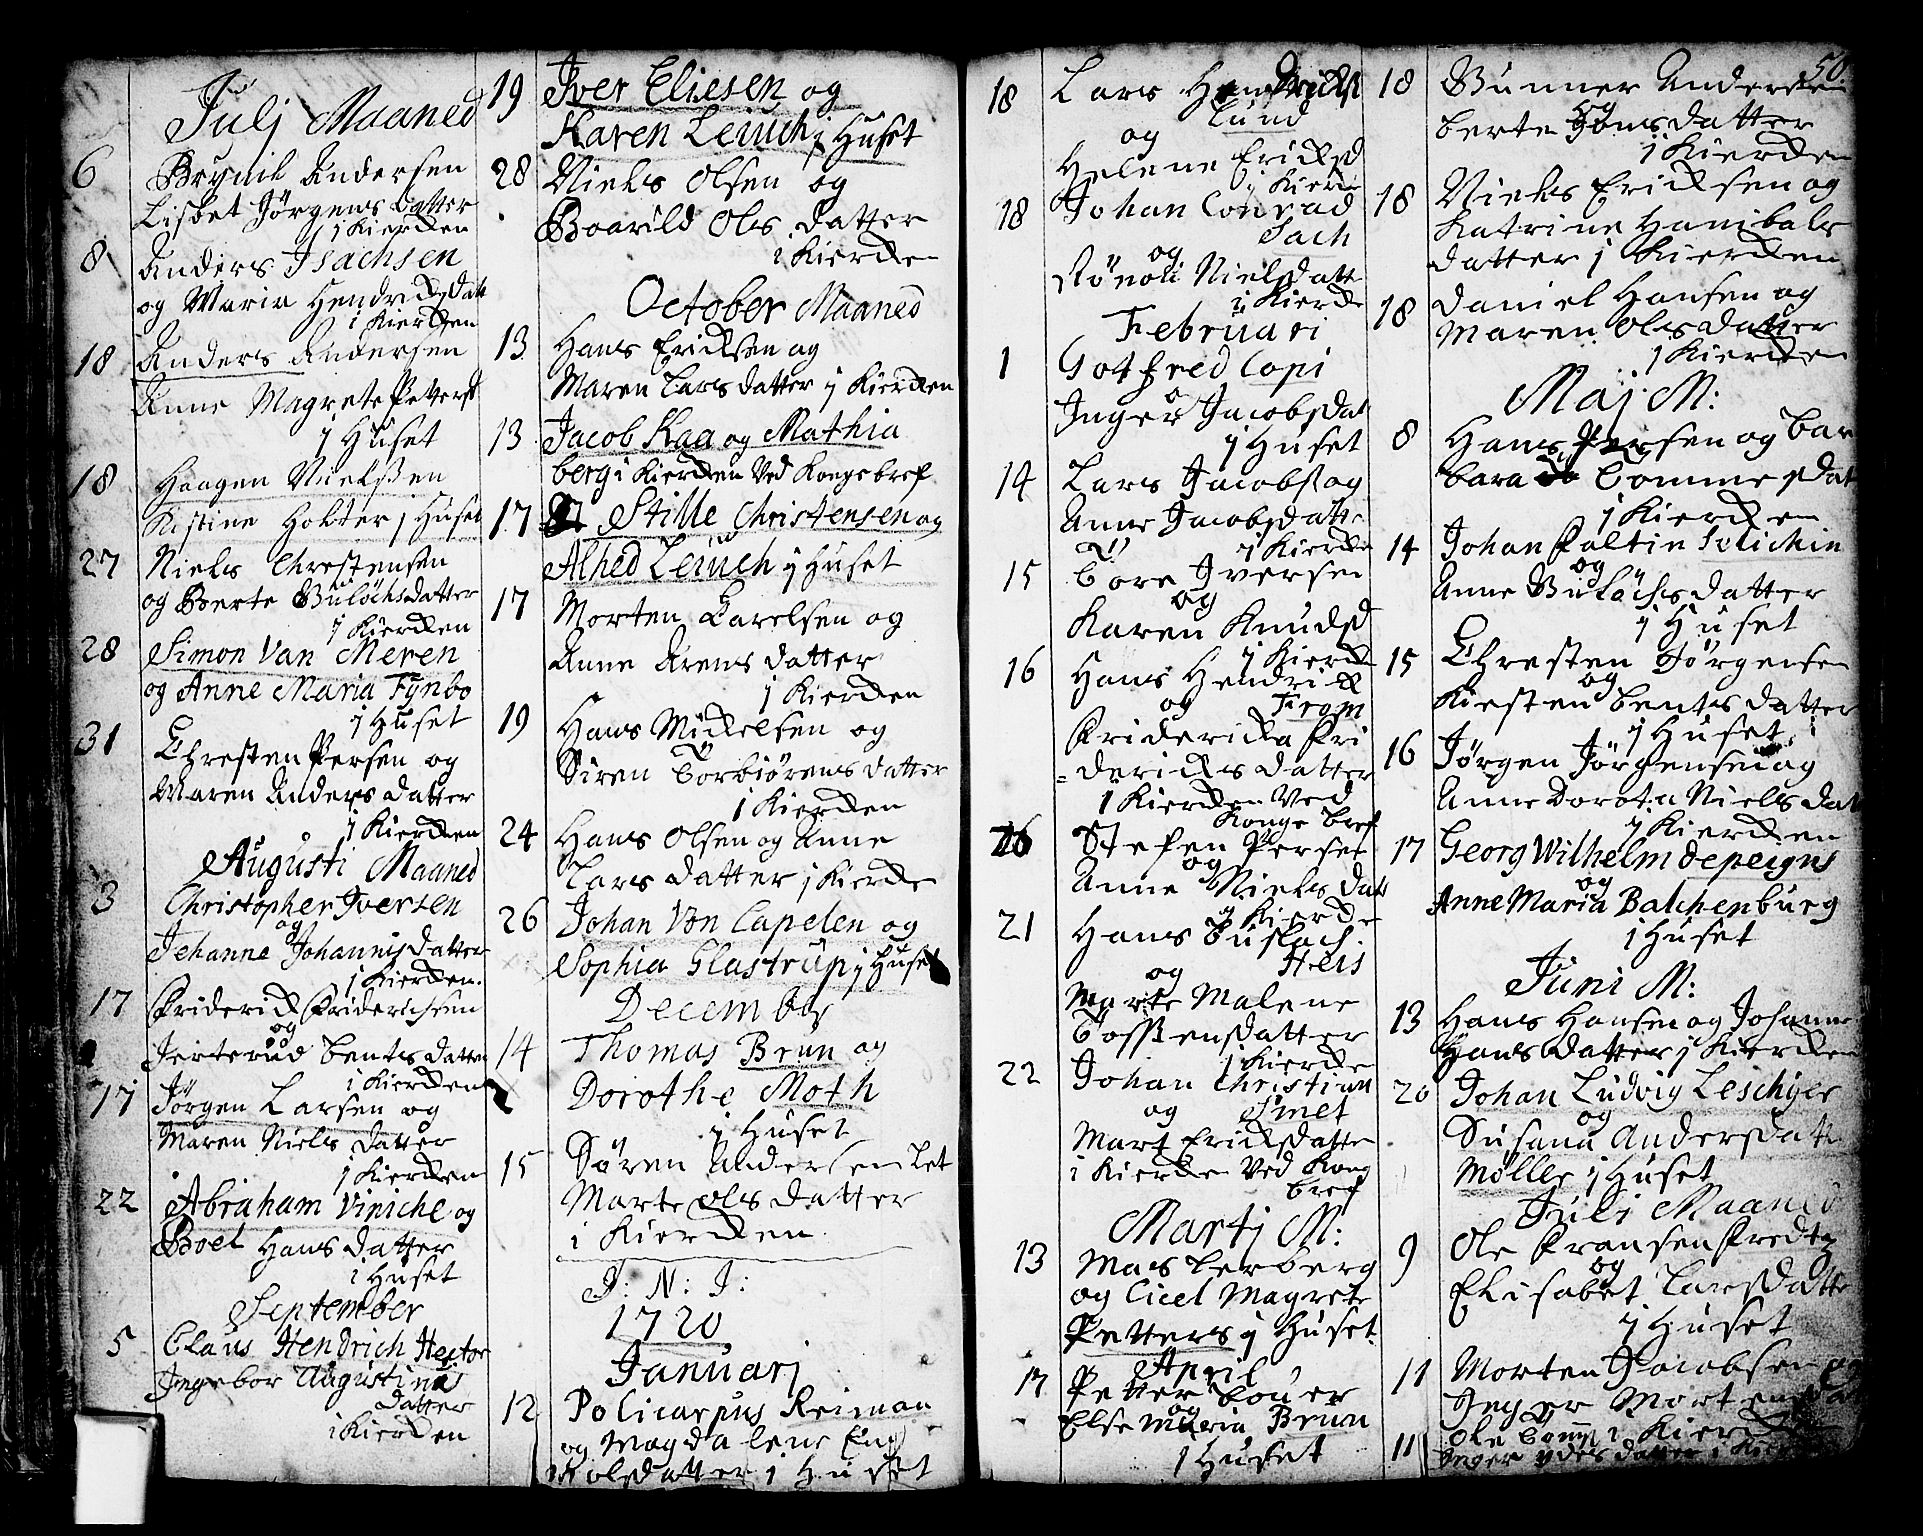 Julj Maaned
6 Brynil Andersen
Lisbet Jörgens datter
i Kiercken
8 Anders Isachsen
og Maria Hendricksdatt
i Kiercken
18 Anders Andersen
Anne Magrete Petters
j Huset
18 Haagen Nielssen
Kistine Holter j Huset
27 Niels Chrestensen
og Berte Gulöchsdatter
j Kiercken
28 Simon Van Meren
og Anne Maria Fynbo
j Huset
31 Chresten Persen og
Maren Anders datter
j Kiercken
Augusti Maaned
3 Christopher Iversen
og
Jehanne Johannisdatter
j Kiercken.
17 Friderick Friderichsen
og
Jerterud Bents datter
i Kiercken
17 Jörgen Larsen og
Maren Niels datter
j Kiercken
22 Abraham Viniche og
Boel Hans datter
i Huset
September
5 Claus Hendrich Hector
Ingebor Augustinus
datter
i Kiercken
19 Iver Eliesen og
Karen Leuch j Huset
28 Niels Olsen og
Baarild Ols datter
i Kiercken
October Maaned
13 Hans Ericksen og
Maren Lars datter j Kiercken
13 Jacob Kaa og Mathia
berg i Kiercken Ved Konge bref
17 Stille Christensen og
Alhed Leuch j Huset
17 Morten Carelsen og
Anne Arens datter
j Kiercken
19 Hans Mickelsen og
Siren Torbiörens datter
j Kiercken
24 Hans Olsen og Anne
Lars datter j Kiercke
26 Johan Von Capelen og
Sophia Glastrup j Huset
December
14 Thomas Brun og
Dorothe Moth
j Huset
15 Sören Andersen Let
Marte Ols datter
i Kiercken
J: N: J:
1720
Januarj
12 Policarpus Reiman
og Magdalene Eng
elsdatter j Huset
50.
18 Lars Hendricks
Lund
og
Helene Ericksd
j Kierck
18 Johan Conrad
Sach
og
Rönoli Nielsdatt
i Kiercke
Februari
1 Gotfred Copi
o
Inger Jacobsdat
j Huset
14 Lars Jacobs og
Anne Jacobsdatte
j Kiercke
15 Tore Iversen
og
Karen Knudsd
j Kierck
16 Hans Hendrick
og From
Fridericka Fri
=dericksdatter
i Kiercken Ved
Konge bref
26 Stefen Persen
og
Anne Niels datt
j Kiercke
21 Hans Buslach.
og Heis
Marte Malene
Tosstensdatter
j Kiercke
22 Johan Christian
og Smet
Mart Ericksdatte
i Kiercke Ved Kong
bref
Martj M:
13 Mas Lerberg
og Cicel Magrete
Petters j Huset
April
17 Petter Couer
og
Else Maria Brun
i Huset
18 Gunner Andersen
og
berte Hansdatter
i Kiercken
18 Niels Ericksen og
Katrine Hanibals
datter j Kiercken
18 Daniel Hansen og
Maren Olsdatter
j Kiercken
Maj M:
8 Hans Persen og Bar
bara Tommesdat
j Kiercken
14 Johan Faltin
og
Anne Gulöchsdatter
j Huset
15 Chresten Jörgensen
og
Kiersten Bents datter
j Huset
16 Jörgen Jörgensen og
Anne Dorota Niels dat
j Kiercken
17 Georg Wilhelm depeigns
og
Anne Maria Balchenburg
i Huset
Juni M:
13 Hans Hansen og Johanne
Hans datter j Kiercken
20 Johan Ludvig Leschger
og
Susana Andersdatte
Möller j Huset
Juli Maaned
9 Ole Fransen
og
Elisabet Larsdatte
j Huset
11 Morten Jacobsen og
Inger Mortensda
11 Ole i Kierck
Inger